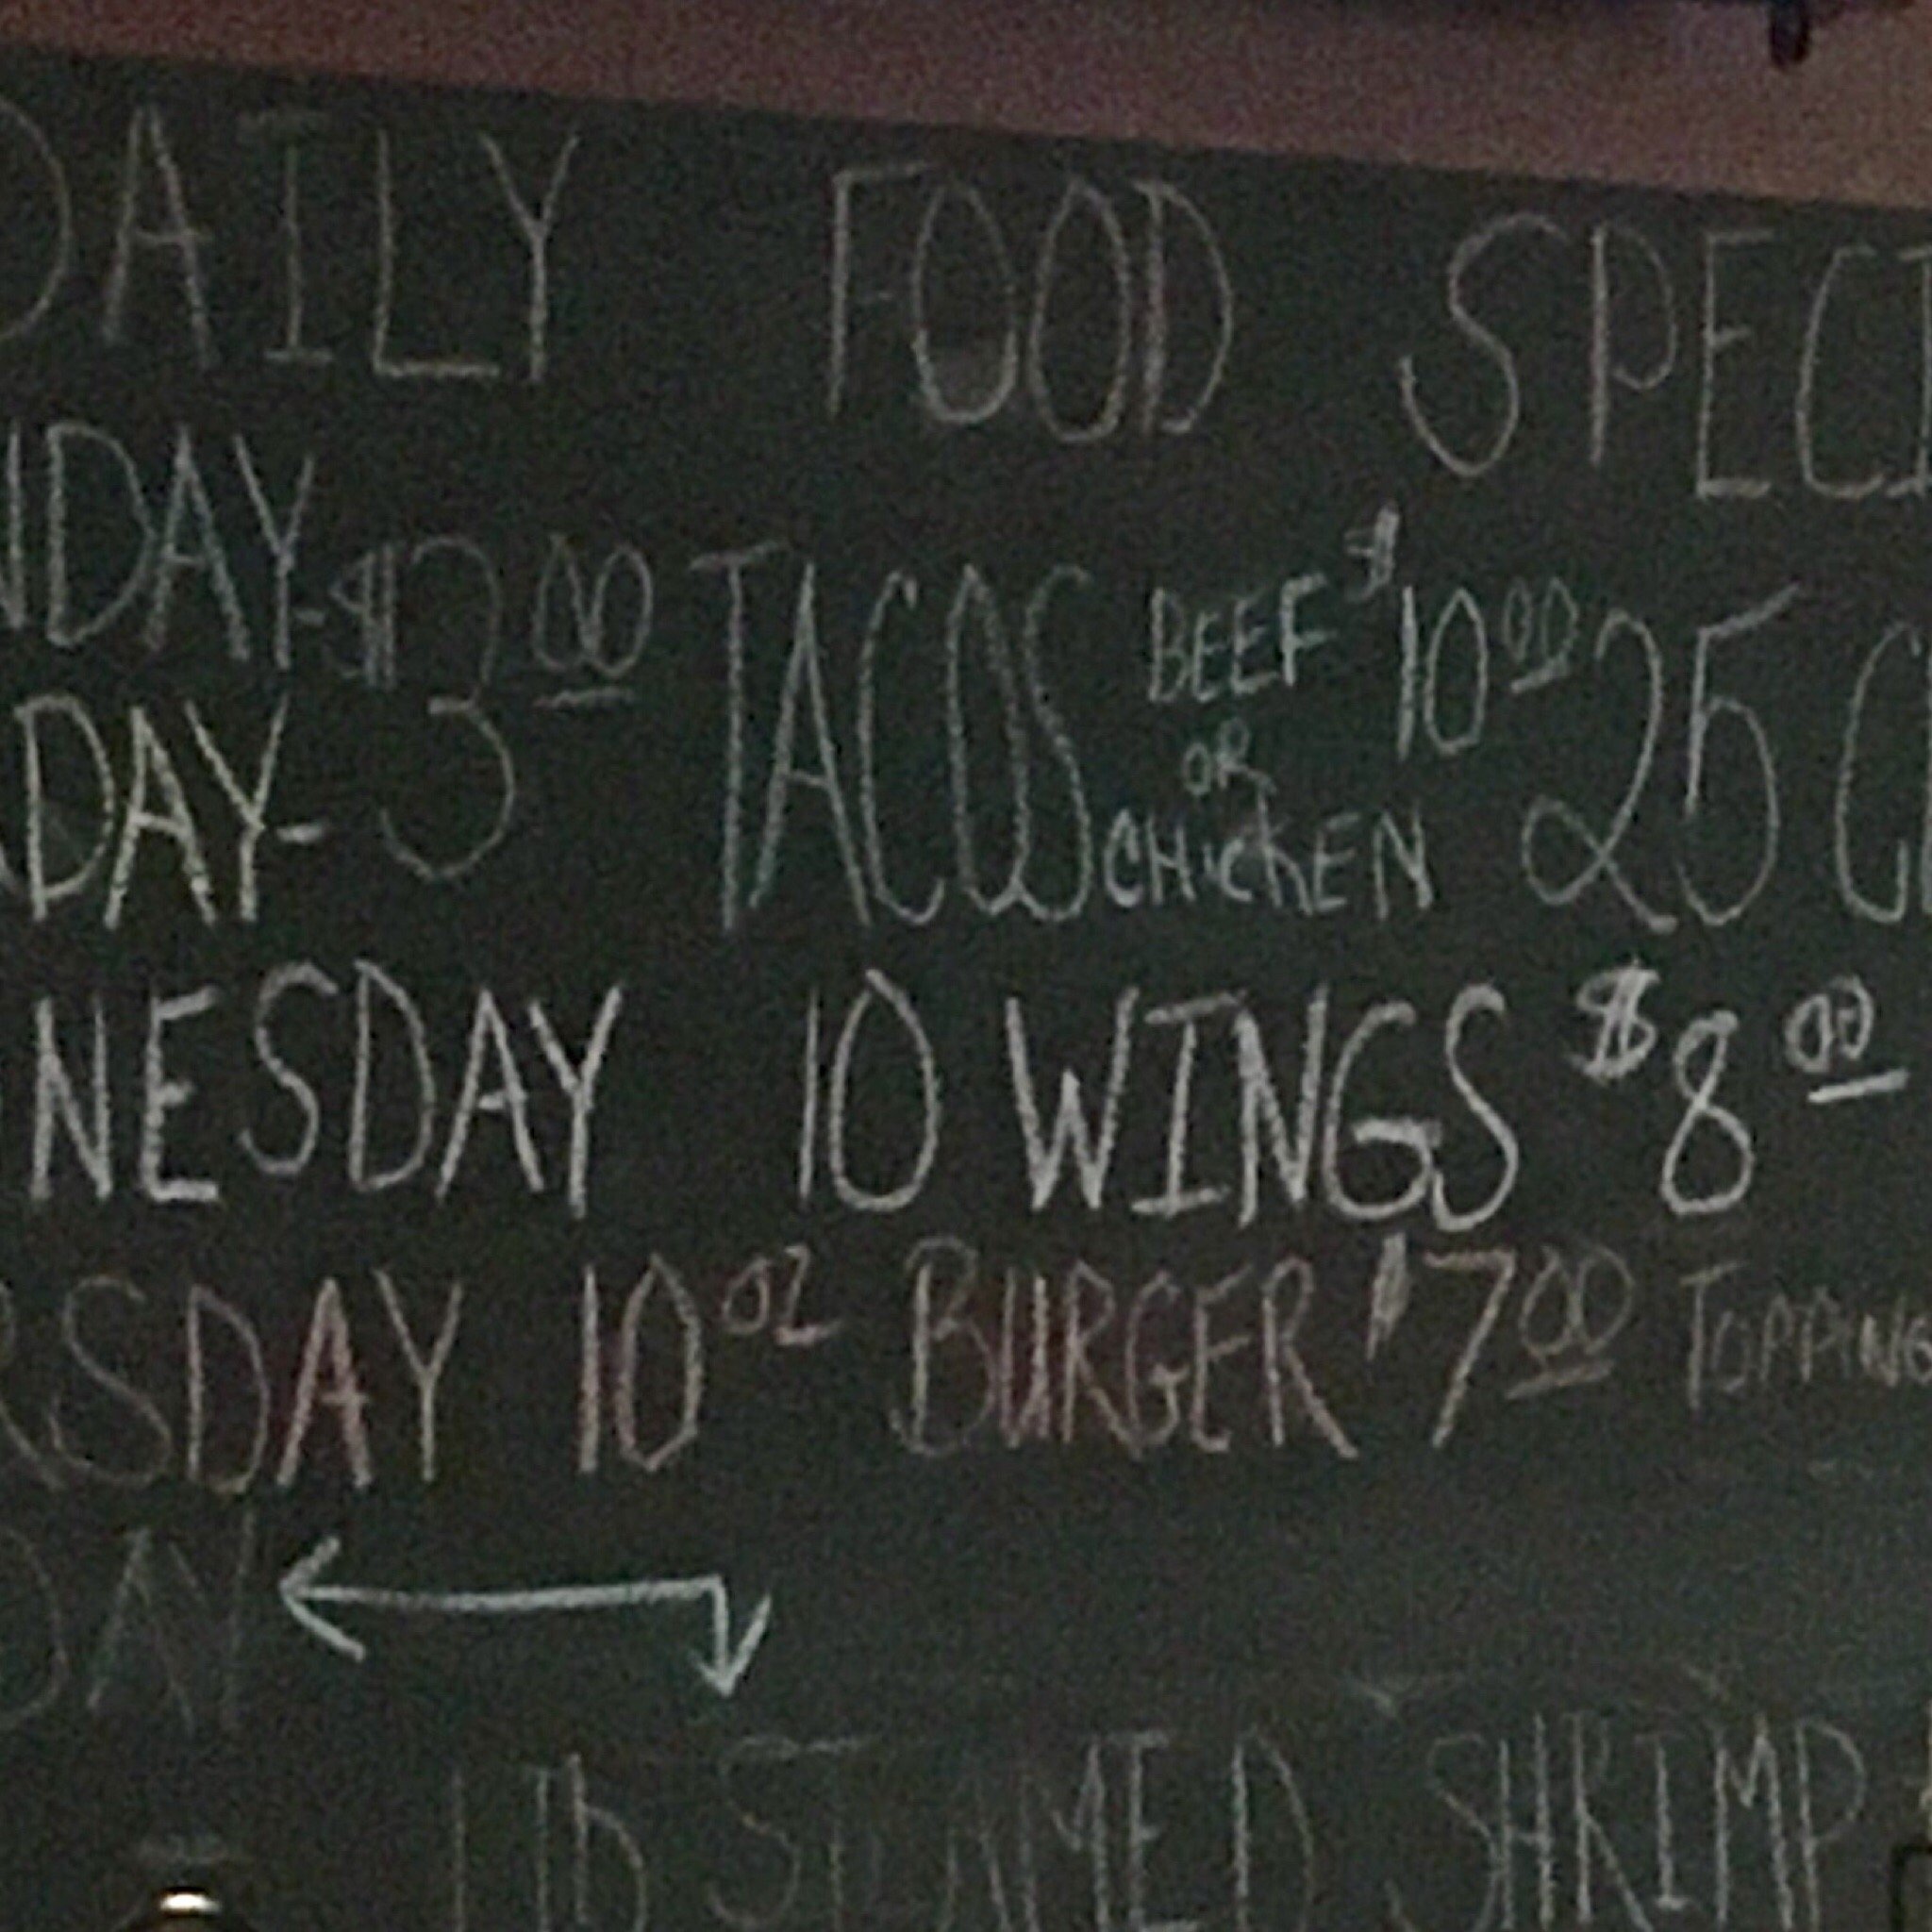 DAILY FOOD SPECI
NDAY-
DAY- $3.00 TACOS BEEF OR CHICKEN $10.00 25 C
NESDAY 10 WINGS $8.00
RSDAY 10 OZ BURGER $7.00 TOPPING
1 lb STEAMED SHRIMP